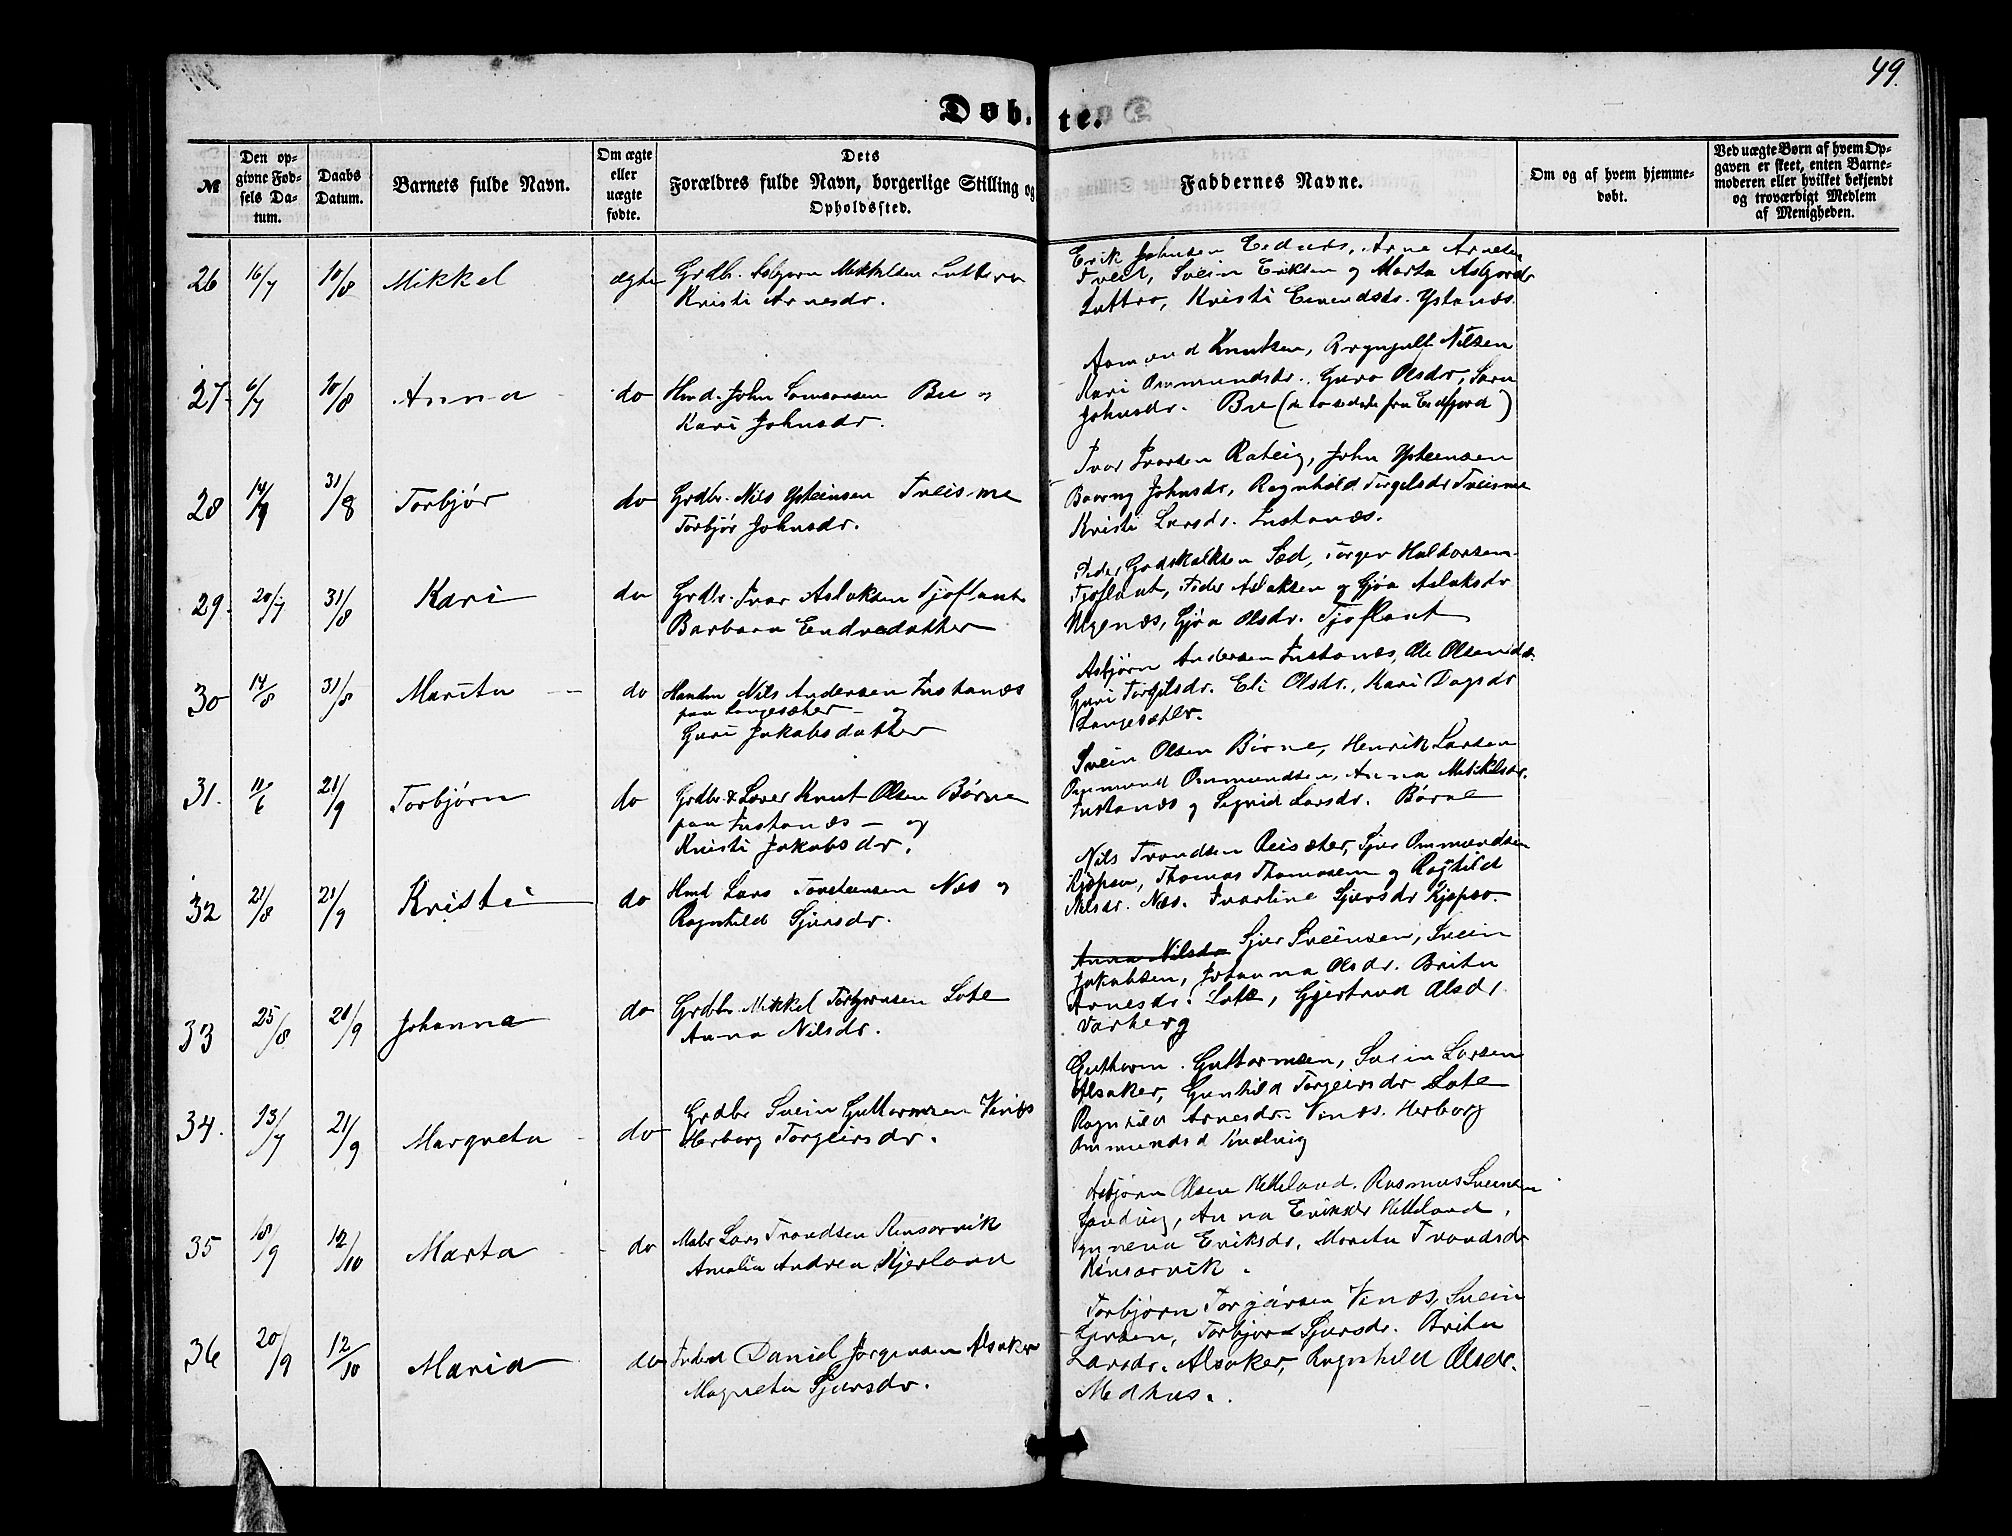 49.
Døbte.
№
Den opgivne Fødsels Datum.
Daabs Datum.
Barnets fulde Navn.
Om ægte eller uægte fødte.
Dets Forældres fulde Navn, borgerlige Stilling og Opholdssted.
Faddernes Navne.
Om og af hvem hjemmedøbt.
Ved uægte Børn af hvem Opgaven er skeet, enten Barnemoderen eller hvilket bekjendt og troværdigt Medlem af Menigheden.
26 16/7 10/8 Mikkel ægte Grdbr. Asbjørn Mikkelsen Luttro
Kristi Arnesdr.
Erik Johnsen Eidnes, Arne Arnesen
Tveit, Svein Eriksen og Marta Asbjørnsdr
Luttro, Kristi Eivendsdr. Ystanæs.
27. 6/7 10/8 Anna do Hmd. John Samsonsen Bu og
Kari Johnsdr.
Aamund Knutsen, Nilsen
Kari Ommundsdr. Guro Olsdr, Sara
Johnsdr. Bu (de to sidste fra Eidfjord)
28 14/7 31/8 Torbjør do Grdbr. Nils Ysteinsen Tveisme
Torbjør Johnsdr.
Ivar Ivarsen Rateig, John Ysteinsen
Johnsdr, Ragnhild Torgilsdr Tveisme
Kristi Larsdr. Instanæs.
29. 20/7 31/8 Kari do Grdbr. Ivar Aslaksen Tjoflaat
Barbara Endredatter
Peder Godskalksen Sæd, Torger Haldorsen
Tjoflaat, Peder Aslaksen og Gjøa Aslaksdr
Gjøa Olsdr. Tjoflaat
30 14/8 31/8 Marita do Nils Andersen Instanæs
paa Langesæter – og
Guri Jakobsdatter
Asbjørn Andersen Instanæs, Ole Olsen
Guri Torgilsdr. Eli Olsdr., Kari Dagsdr
Langesæter.
31. 11/6 21/9 Torbjørn do Grdbr & Lærer Knut Olsen Børne
paa Instanæs – og
Kristi Jakobsdr.
Svein Olsen Børne, Henrik Larsen
Ommund Ommundsen, Anna Mikkelsdr.
Instanæs og Sigrid Larsdr. Børne
32 21/8 21/9 Kristi do Hmd Lars Torsteinsen Næs og
Ragnhild Sjursdr.
Nils Trondsen Reisæter, Sjur Ommundsen
Kjepso, Thomas Thomasen og Ragnhild
Nilsdr. Næs. Ivarline Sjursdr Kjepso.
33 25/8 21/9 Johanna do Grdbr. Mikkel Torbjørnsen Lote
Anna Nilsdr.
Anna Nilsdr Sjur Sveinsen, Svein
Jakobsen, Johanna Olsdr. Brita
Arnesdr. Lote, Gjertrud Olsdr
Varberg
34. 13/7 21/9 Margreta do Grdbr Svein Guttormsen Vinæs
Herborg Torgeirsdr.
Guttorm Guttormsen, Svein Larsen
Alsaker, Gunhild Torgeirsdr Lote
Ragnhild Arnesdr. Vinæs. Herborg
Ommundsd
35 18/9 12/10 Marta do Maler Lars Trondsen Kinsarvik
Amalia Andrea Kjerland
Asbjørn Olsen Helleland. Rasmus Sveinsen
Sandvig, Anna Eriksdr Helleland,
Synneva Eriksdr. Marita Trondsdr
Kinsarvik.
36 20/9 12/10 Maria do Daniel Jørgensen Alsaker
Magneta Sjursdr.
Torbjørn Torgeirsen Vinæs, Svein
Larsen, Torbjør Sjursdr. Brita
Larsdr. Alsaker, Ragnhild Olsdr.
Medhus.